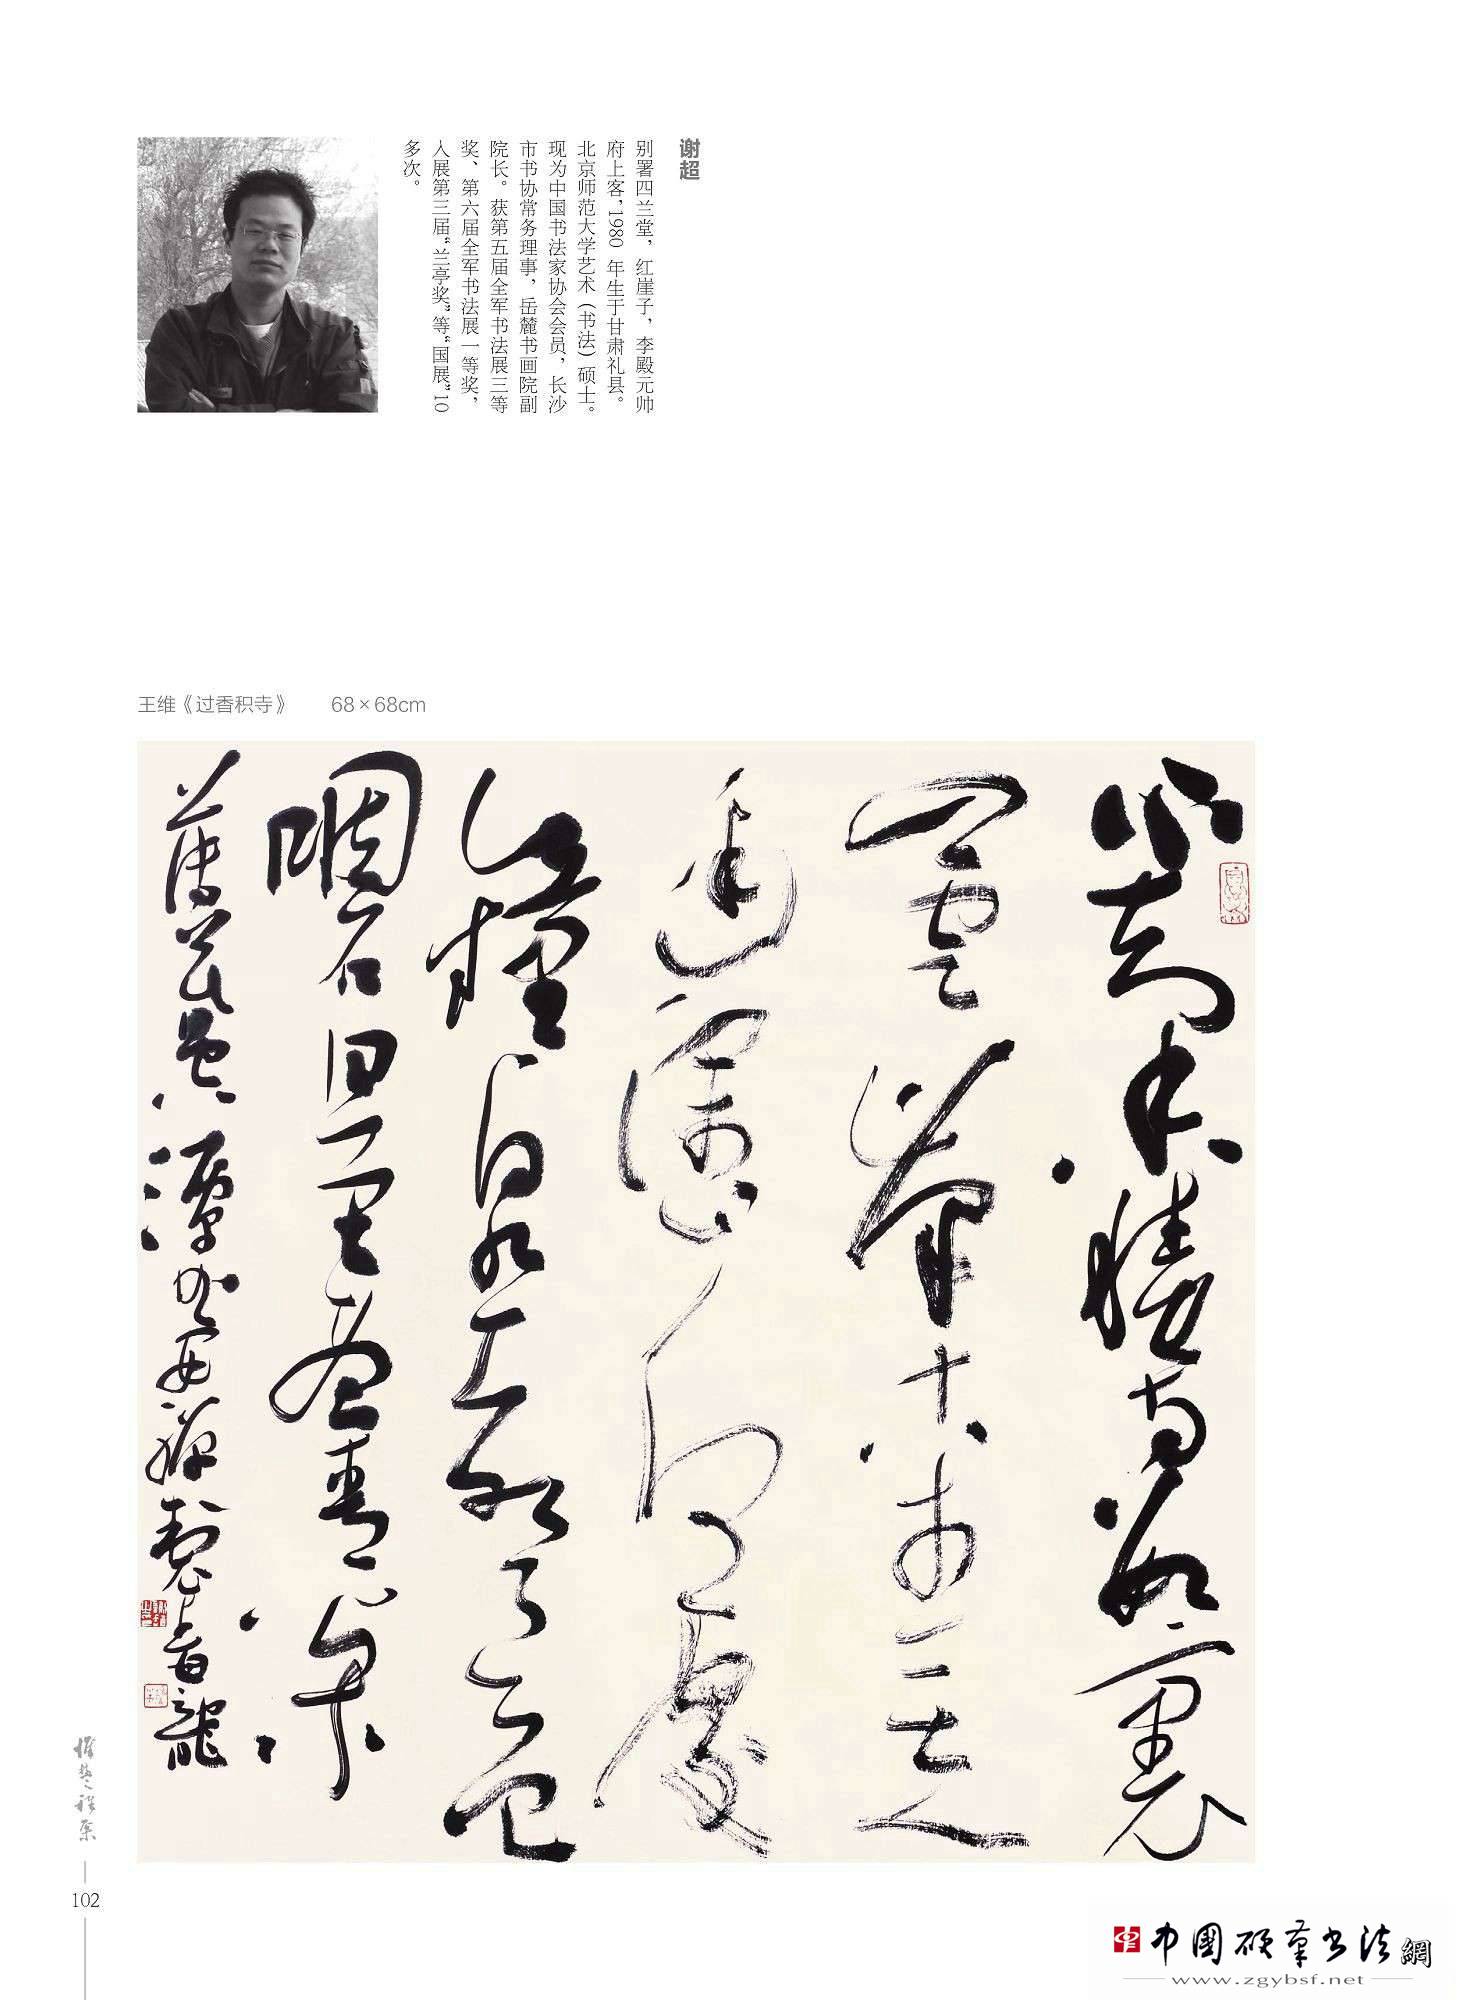 谢超
别署四兰堂，红崖子，李殿元帅
府上客，1980 年生于甘肃礼县。
北京师范大学艺术（书法）硕士。
现为中国书法家协会会员，长沙
市书协常务理事，岳麓书画院副
院长。获第五届全军书法展三等
奖、第六届全军书法展一等奖，
入展第三届“兰亭奖”等“国展”10
多次。
王维《过香积寺》 68×68cm
不知香積寺數里
入雲峰古木無人
逕深山何處
鐘泉聲
咽石日青松
薄暮空潭曲安禪製毒龍
102
中国硬笔书法網
www.zgybsf.net